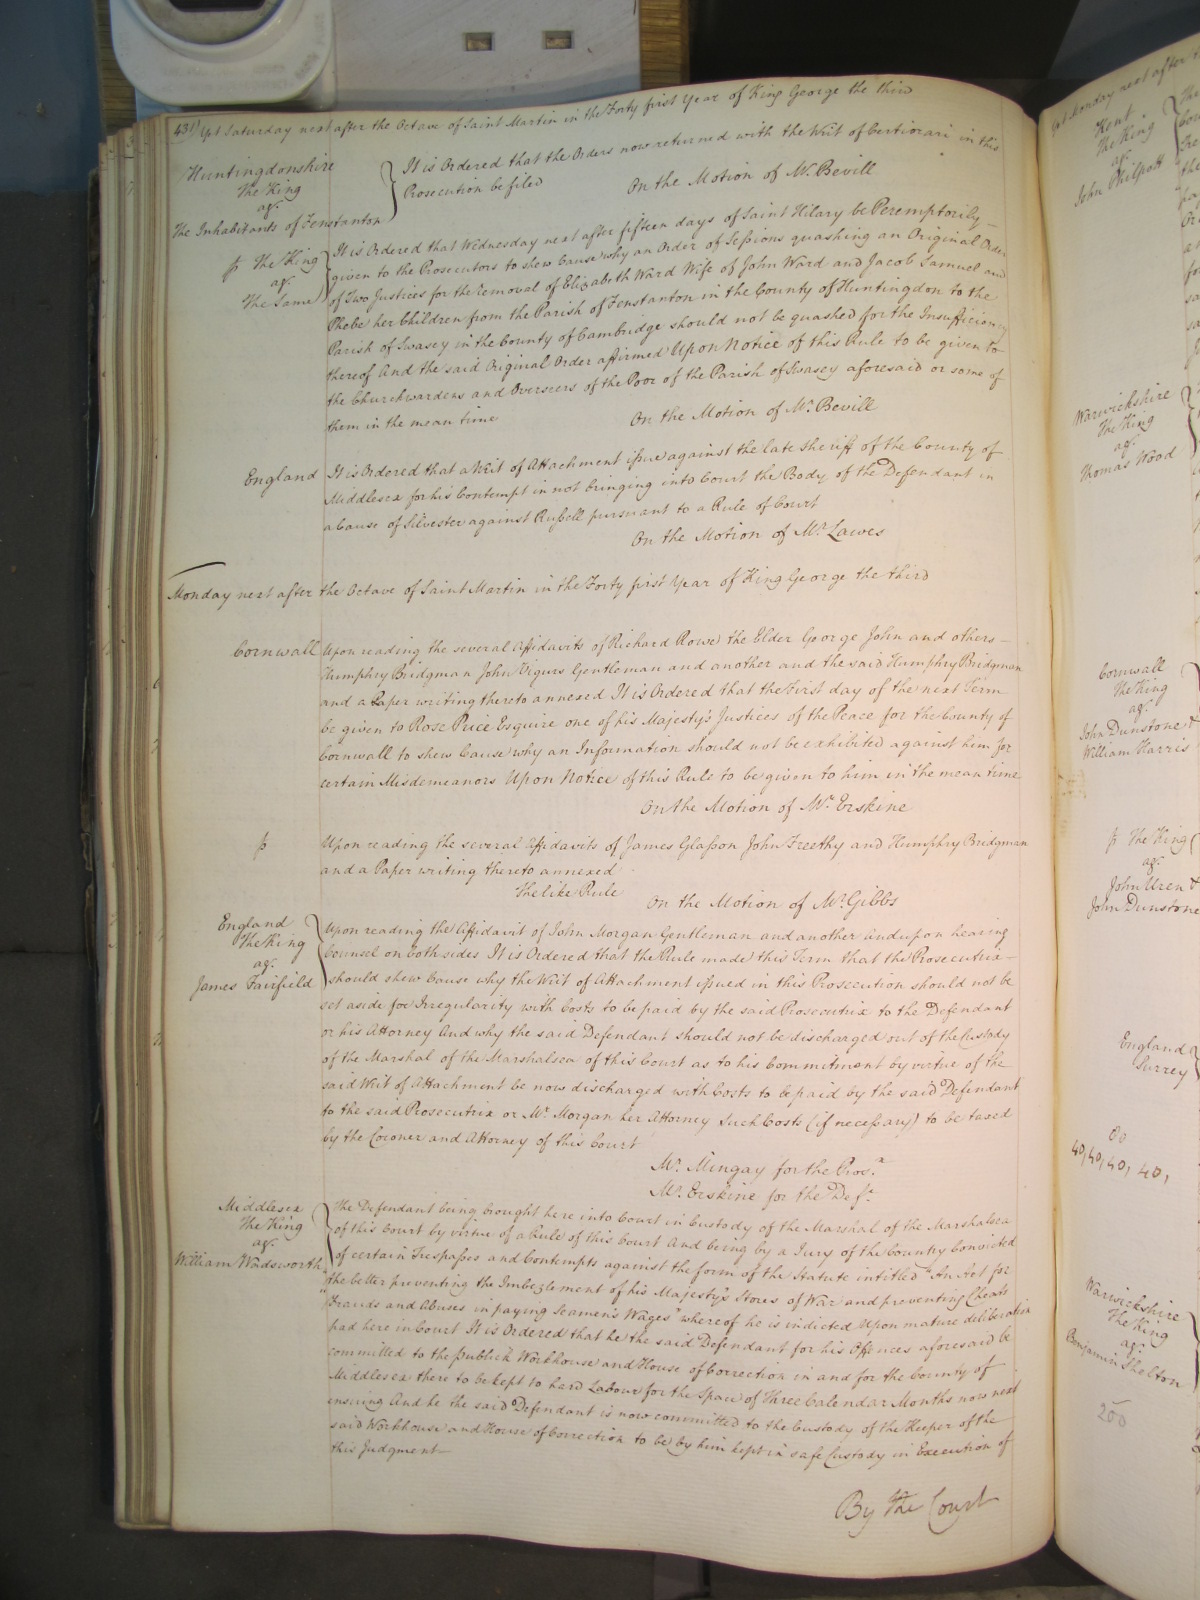 431) Yet Saturday next after the Octave of Saint Martin in the Forty first Year of King George the third
Huntingdonshire
The King
ag.t
The Inhabitants of Fenstanton
It is Ordered that the Orders now returned with the Writ of Certiorari in this
Prosecution be filed
On the Motion of Mr. Bevill
The King
ag.t
The Same
It is Ordered that Wednesday next after fifteen days of Saint Hilary be Peremptorily
given to the Prosecutors to shew Cause why an Order of Sessions quashing an Original Order
of Two Justices for the removal of Elizabeth Ward Wife of John Ward and Jacob Samuel and
Phebe her Children from the Parish of Fenstanton in the County of Huntingdon to the
Parish of Swasey in the County of Cambridge should not be quashed for the Insufficiency
thereof And the said Original Order affirmed Upon Notice of this Rule to be given to
the Churchwardens and Overseers of the Poor of the Parish of Swasey aforesaid or some of
them in the mean time
On the Motion of Mr. Bevill
England
It is Ordered that a Writ of Attachment issue against the late Sheriff of the County of
Middlesex for his Contempt in not bringing into Court the Body of the Defendant in
a Cause of Silvester against Russell pursuant to a Rule of Court
On the Motion of Mr. Lawes
Monday next after the Octave of Saint Martin in the Forty first Year of King George the third
Cornwall
Upon reading the several Affidavits of Richard Rowe the Elder George John and others
Humphry Bridgman John Vigurs Gentleman and another and the said Humphry Bridgman
and a Paper writing thereto annexed It is Ordered that the First day of the next Term
be given to Rose Price Esquire one of his Majesty's Justices of the Peace for the County of
Cornwall to shew Cause why an Information should not be exhibited against him for
certain Misdemeanors Upon Notice of this Rule to be given to him in the mean time
On the Motion of Mr. Erskine
Upon reading the several Affidavits of James Glasson John Freethy and Humphry Bridgman
and a Paper writing thereto annexed
The like Rule
On the Motion of Mr. Gibbs
England
The King
ag.t
James Fairfield
Upon reading the Affidavit of John Morgan Gentleman and another and upon hearing
Counsel on both sides It is Ordered that the Rule made this Term that the Prosecutrix
should shew Cause why the Writ of Attachment issued in this Prosecution should not be
set aside for Irregularity with Costs to be paid by the said Prosecutrix to the Defendant
or his Attorney And why the said Defendant should not be discharged out of the Custody
of the Marshal of the Marshalsea of this Court as to his Commitment by virtue of the
said Writ of Attachment be now discharged with Costs to be paid by the said Defendant
to the said Prosecutrix or Mr. Morgan her Attorney Such Costs (if necessary) to be taxed
by the Coroner and Attorney of this Court
Mr. Mingay for the Pros.x
Mr. Erskine for the Def.t
Middlesex
The King
ag.t
William Wadsworth
The Defendant being brought here into Court in Custody of the Marshal of the Marshalsea
of this Court by virtue of a Rule of this Court And being by a Jury of the Country Convicted
of certain Trespasses and Contempts against the form of the Statute intitled "An Act for
"the better preventing the Imbezlement of his Majesty's Stores of War and preventing Cheats
"Frauds and Abuses in paying Seamen's Wages" whereof he is indicted Upon mature deliberation
had here in Court It is Ordered that he the said Defendant for his Offences aforesaid be
committed to the publick Workhouse and House of Correction in and for the County of
Middlesex there to be kept to hard Labour for the Space of Three Calendar Months now next
ensuing And he the said Defendant is now committed to the Custody of the Keeper of the
said Workhouse and House of Correction to be by him kept in safe Custody in Execution of
this Judgment
By the Court
Yet Monday next after
Kent
The King
ag.t
John Philpott
Warwickshire
The King
ag.t
Thomas Wood
Cornwall
The King
ag.t
John Dunstone &
William Harris
The King
ag.t
John Uren &
John Dunstone
England
Surrey
80
40, 40, 40, 40,
Warwickshire
The King
ag.t
Benjamin Shelton
200